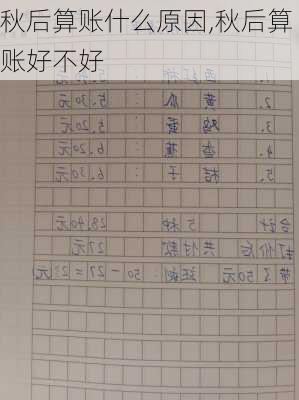 秋后算账什么原因,秋后算
账好不好
1. 西红柿 : 5.40元
2. 黄瓜 : 5.30元
3. 鸡蛋 : 5.20元
4. 香蕉 : 6.20元
5. 桔子 : 6.30元
合计 5种 28.40元
打价后 共付款 27元
带了50元 还剩: 50-27=23元